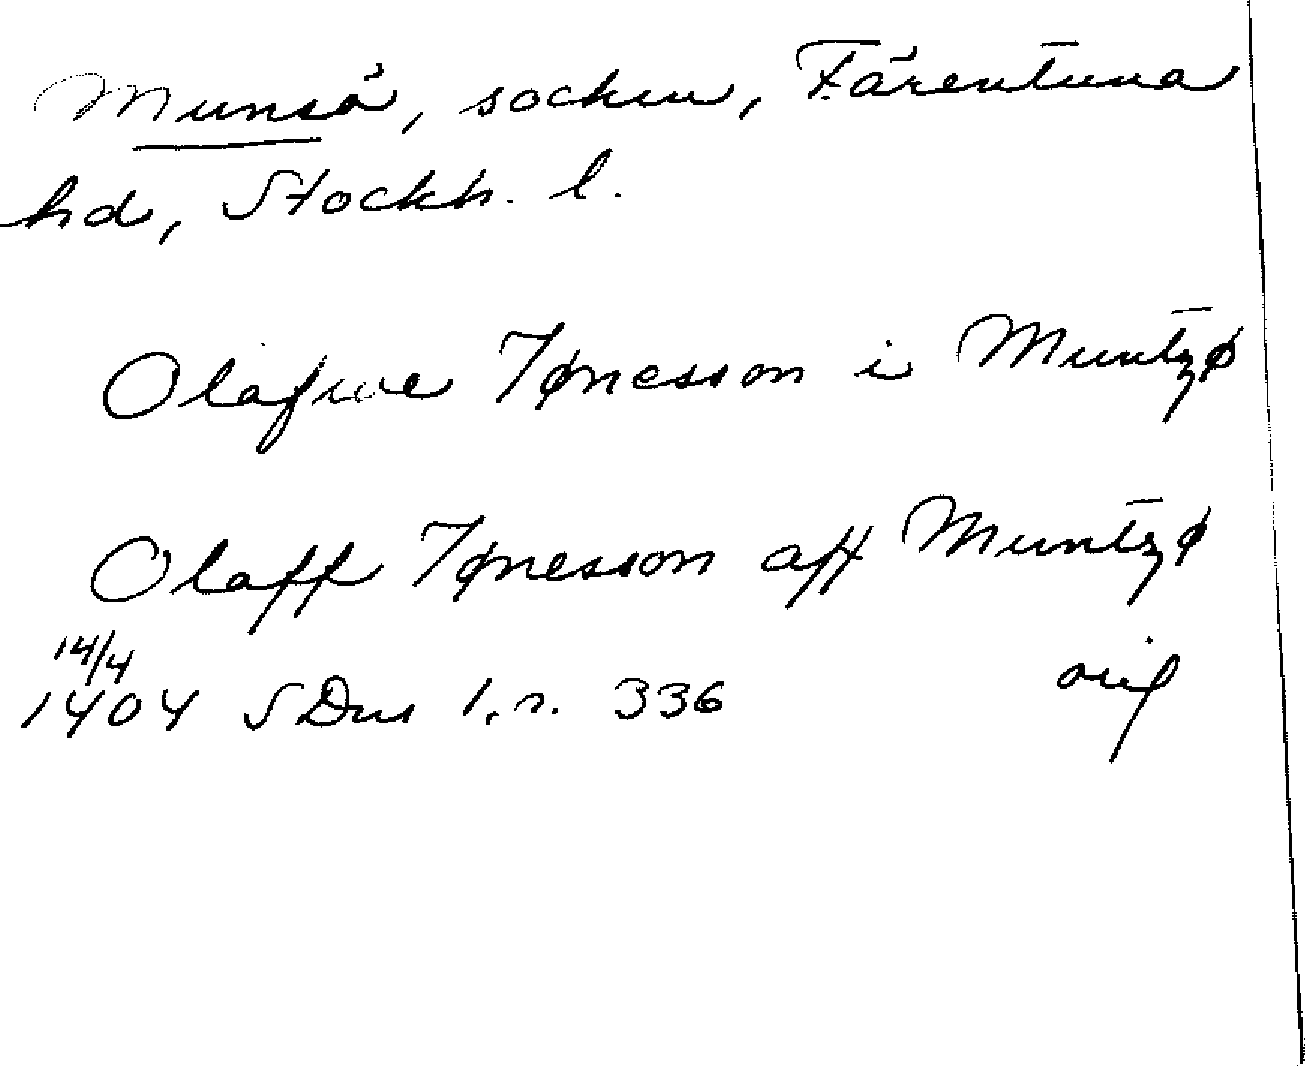 Munsö, socken, Färentuna
hd, Stockh. l.
Olafwe Jønesson i Muntzø
Olaff Jønesson aff Muntzø
14/4
1404 SDns 1, s. 336 orig